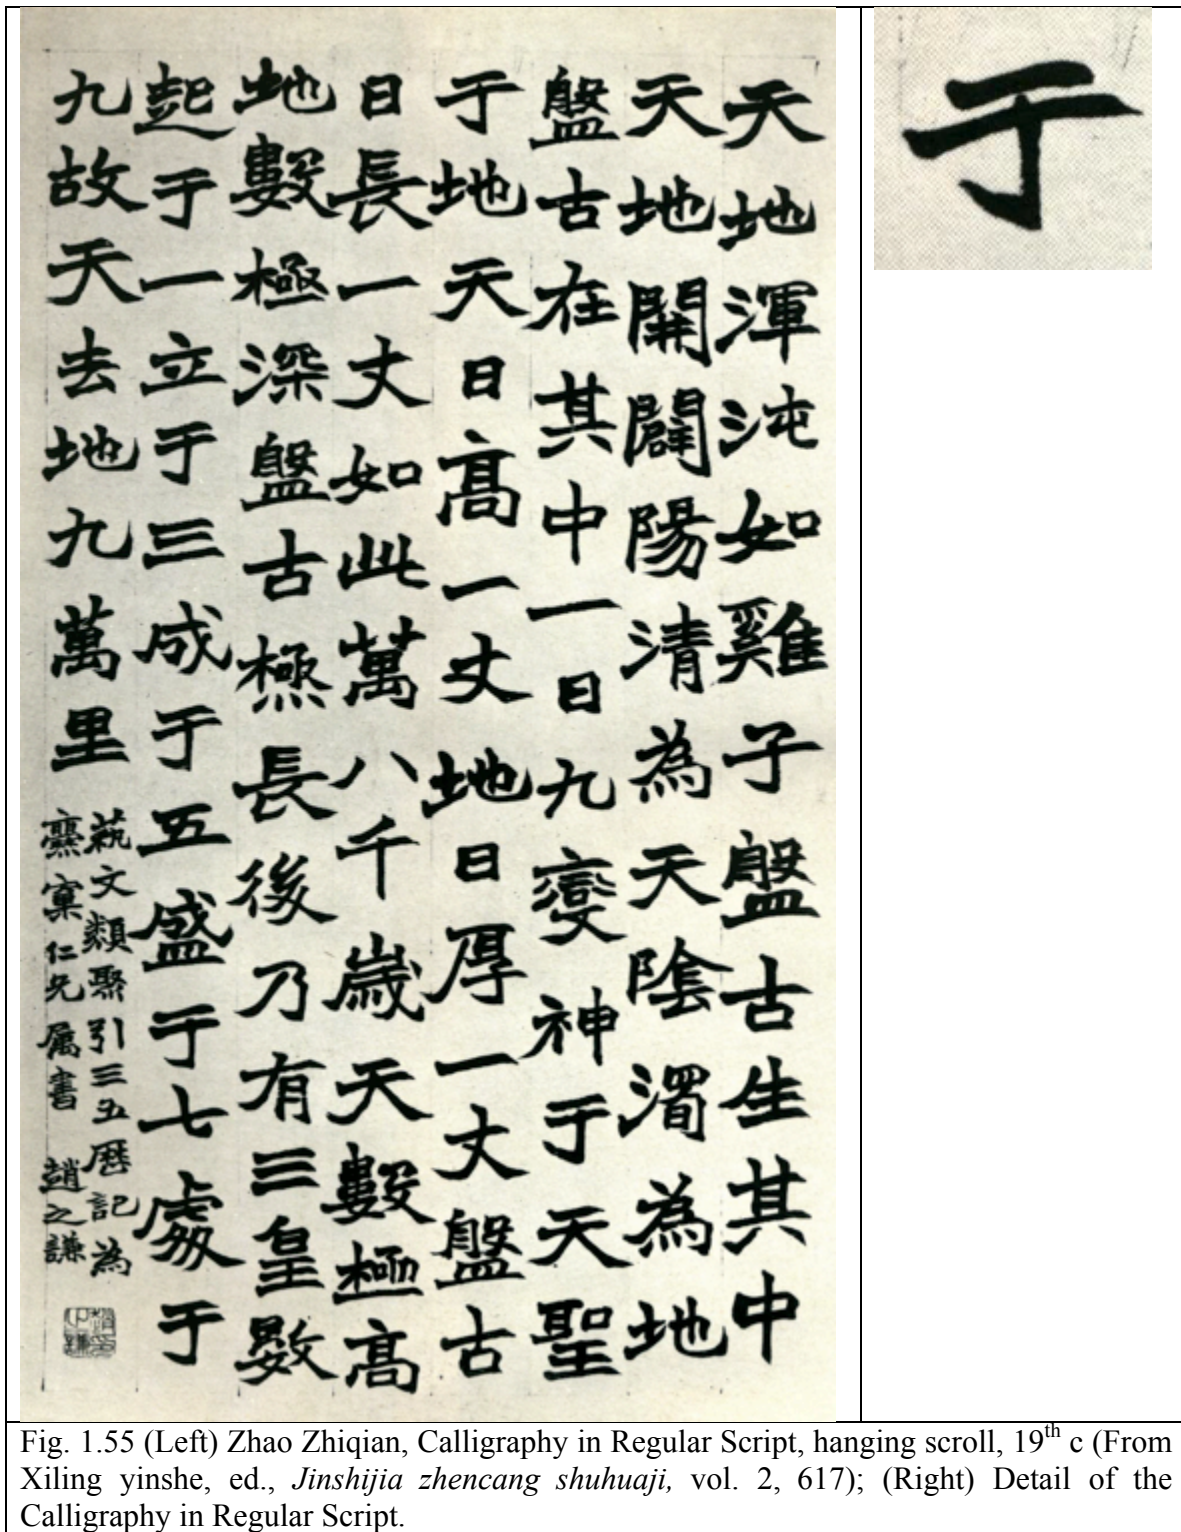 天地渾沌如雞子盤古生其中
天地開闢陽清為天陰濁為地
盤古在其中一日九變神于天聖
于地天日高一丈地日厚一丈盤古
日長一丈如此萬八千歲天數極高
地數極深盤古極長後乃有三皇數
起于一立于三成于五盛于七處于
九故天去地九萬里
蓺文類聚引三五歷記為
仁兄属書 趙之謙
于
Fig. 1.55 (Left) Zhao Zhiqian, Calligraphy in Regular Script, hanging scroll, 19th c (From
Xiling yinshe, ed., Jinshijia zhencang shuhuaji, vol. 2, 617); (Right) Detail of the
Calligraphy in Regular Script.